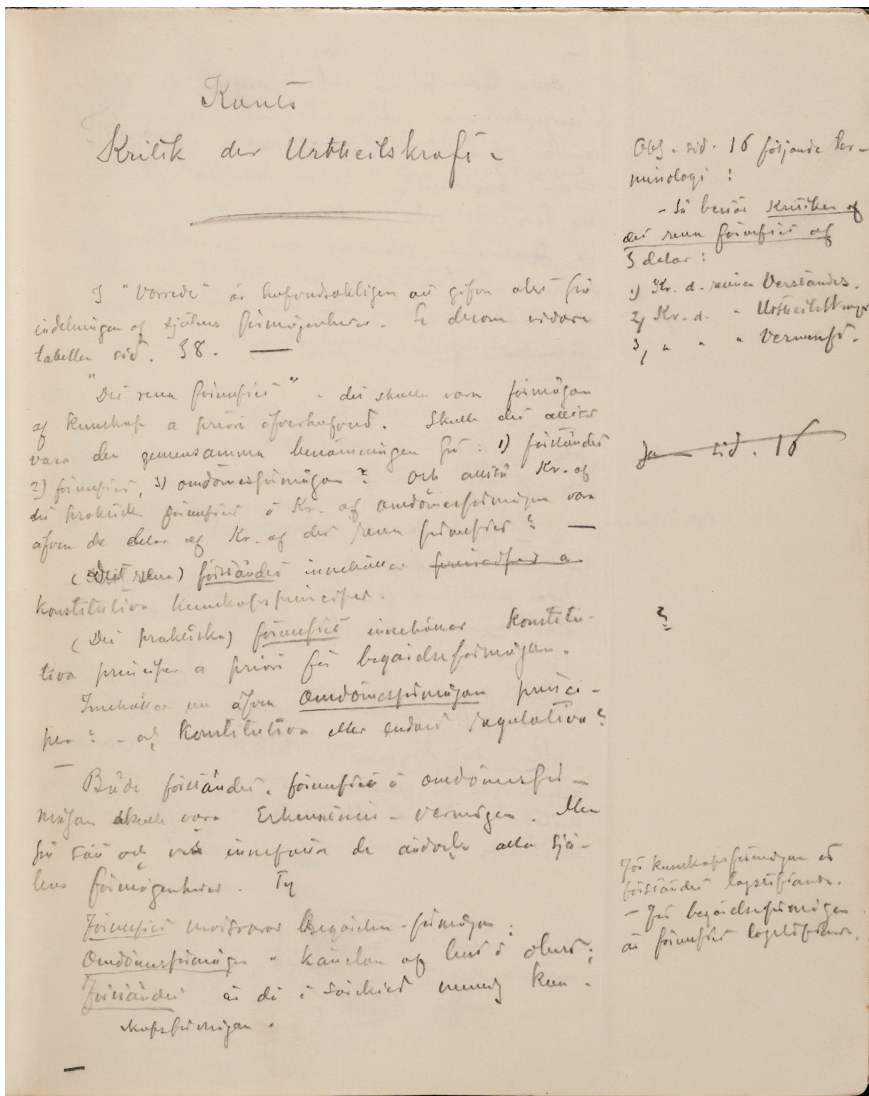 Kants
Kritik der Urtheilskraft.
I "Vorrede" är hufvudsakligen att gifva akt på
indelningen af själens förmögenheter. Se derom vidare
tabellen sid. 38. —
"Det rena förnuftet" - det skulle vara förmågan
af kunskap a priori öfverhufvud. Skulle det alltså
vara den gemensamma benämningen för: 1) förståndet
2) förnuftet, 3) omdömesförmågan? Och alltså Kr. af
det praktiska förnuftet o Kr. af omdömesförmågan vara
äfven de delar af Kr. af det rena förnuftet? —
(Det rena) förståndet innehåller principer a
konstitutiva kunskapsprinciper.
(Det praktiska) förnuftet innehåller konstitu-
tiva principer a priori för begärelseförmågan.
Innehåller nu äfven omdömesförmågan princi-
per? - och konstitutiva eller endast regulativa?
—
Både förståndet, förnuftet o omdömesför-
mågan skulle vara Erkenntniss-vermögen. Men
på sätt och vis innefatta de ändock alla sjä-
lens förmögenheter. Ty
Förnuftet motsvarar Begärelse-förmågan;
Omdömesförmågan " känslan af lust o olust;
Förståndet är då i särskild mening kun-
skapsförmågan.
Obs. sid. 16 följande ter-
minologi:
- Så består Kritiken af
det rena förnuftet af
3 delar:
1) Kr. d. reinen Verstandes.
2) Kr. d. " Urtheilskraft
3) " " " Vernunft.
Ja sid. 16
?
För kunskapsförmågan är
förståndet lagstiftande.
- För begärelseförmågan
är förnuftet lagstiftande.